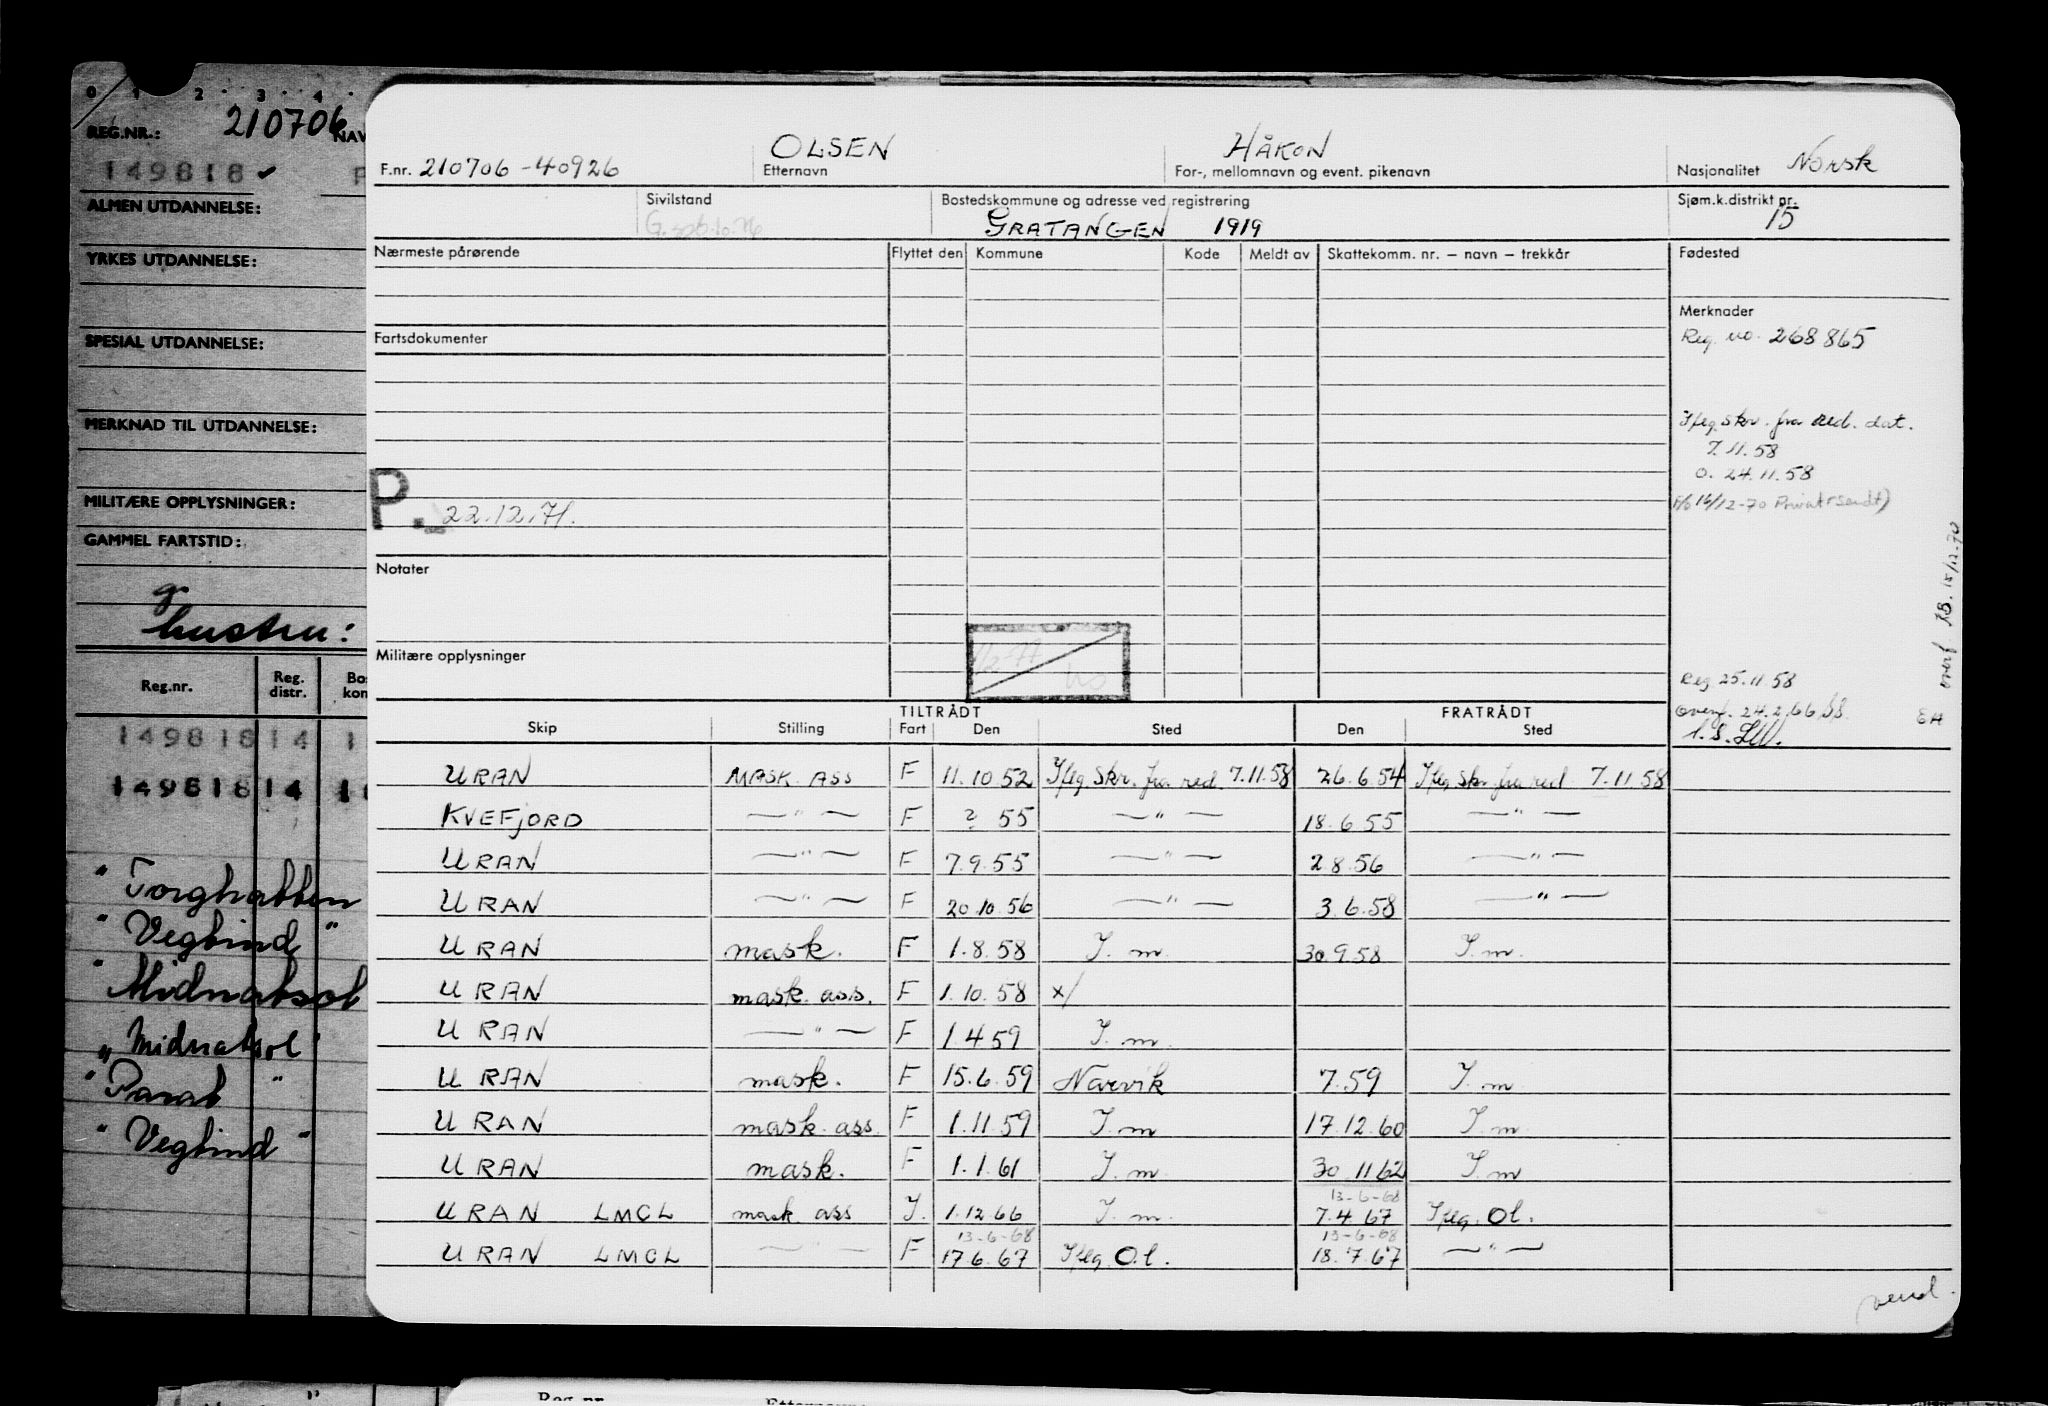 0 1 2 3 4
REG.NR.: 210706 NAV
149818 ✓
ALMEN UTDANNELSE:
YRKES UTDANNELSE:
SPESIAL UTDANNELSE:
MERKNAD TIL UTDANNELSE:
MILITÆRE OPPLYSNINGER:
GAMMEL FARTSTID:
g
hustru:
Reg.nr. Reg. distr. Bo kon
149818 14 1
149818 14 1
" Torghatten
" Vegtind "
" Midnatsol
" Midnatsol "
" Parat "
" Vegtind "
F.nr. 210706-40926 OLSEN Etternavn HÅKON For-, mellomnavn og event. pikenavn Nasjonalitet Norsk
Sivilstand Bostedskommune og adresse ved registrering Sjøm.k.distrikt nr.
GRATANGEN 1919 15
Nærmeste pårørende Flyttet den Kommune Kode Meldt av Skattekomm. nr. – navn – trekkår Fødested
Merknader
Reg. no. 268865
Fartsdokumenter
Iflg. skr. fra red. dat.
7.11.58
o. 24.11.58
16/12-70 Privat sendt)
P. 22.12.71.
Notater
Militære opplysninger
overf. 15/12-70
Reg 25.11 58
Overf. 24.2.66 EH
TILTRÅDT FRATRÅDT
Skip Stilling Fart Den Sted Den Sted
URAN MASK. ASS F 11.10 52 Iflg. skr. fra red. 7.11.58 26.6.54 Iflg. skr. fra red 7.11.58
KVEFJORD —"— F ? 55 —"— 18.6 55 —"—
URAN —"— F 7.9.55 —"— 2 8.56 —"—
URAN —"— F 20.10.56 —"— 3.6.58 —"—
URAN mask. F 1.8.58 I. m. 30.9.58 I. m.
URAN mask. ass. F 1.10.58 x/
URAN —"— F 1.4 59 I. m.
URAN mask. F 15.6.59 Narvik 7.59 I. m
URAN mask. ass. F 1.11.59 I. m 17.12.60 I. m
URAN mask. F 1.1.61 I. m 30.11 62 I. m
13-6-68
URAN LMCL mask. ass I. 1.12.66 I. m. 7.4.67 Iflg. Ol.
13-6-68 13-6-68
URAN LMCL —"— F 17.6.67 Iflg. O.l. 18.7.67 —"—
vend.
Reg.nr.